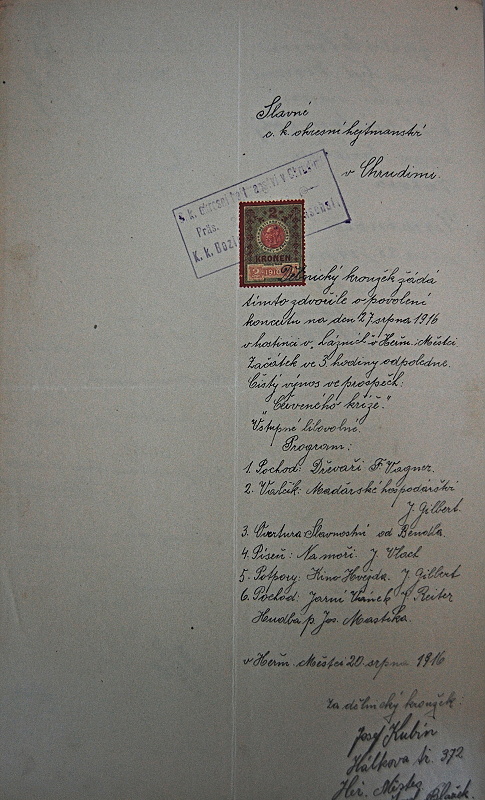 Slavné
c. k. okresní hejtmanství
v Chrudimi.
C. k. okresní hejtmanství v Chrudimi
Präs.
K. k. Bezirks
2
KRONEN
2 1910 2
Dělnický kroužek žádá
tímto zdvořile o povolení
koncertu na den 27 srpna 1916
v hostinci v „Lázních v Heřm. Městci
Začátek ve 3 hodiny odpoledne.
Čistý výnos ve prospěch:
"Červeného kříže."
Vstupné libovolné.
Program:
1. Pochod: Dřevaři F. Vagner.
2. Valčík: Maďarské hospodářství
J. Gilbert.
3. Overtura Slavnostní od Bendla.
4. Píseň: Na moři. J. Vlach
5. Potpory: Kino Hvězda. J. Gilbert
6. Pochod: Jarní Vánek J. Reiter
Hudba p. Jos. Mastíka.
v Heřm. Městci 20 srpna 1916
Za dělnický kroužek:
Josef Kubín
Hálkova tř. 372
Heř. Městec